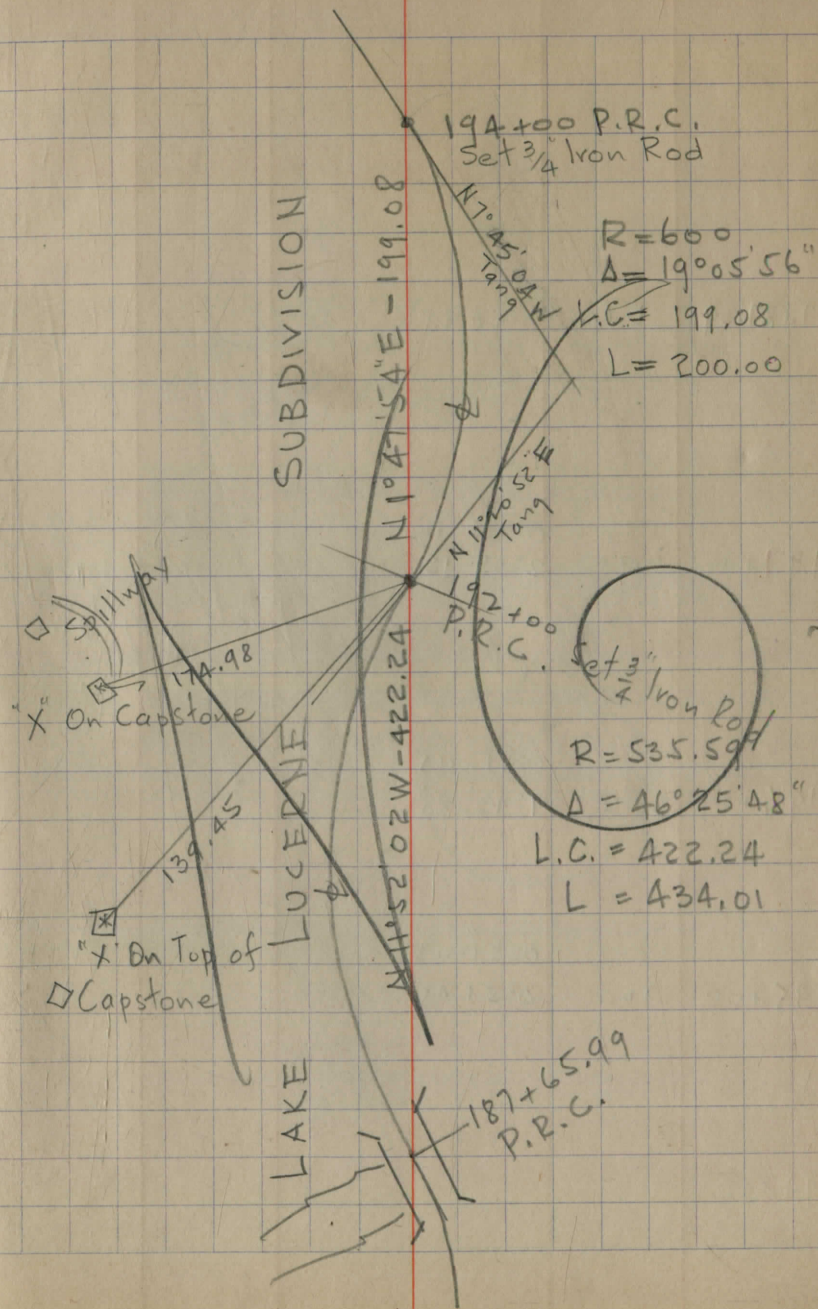 194+00 P.R.C.
Set 3/4 Iron Rod
N7°45'04W
Tang
R=600
Δ=19°05'56"
L.C= 199.08
L= 200.00
SUBDIVISION
N1°47'54"E-199.08
N 11°20'52"E
Tang
192+00
P.R.C.
Set 3/4" Iron Rod
R=535.59
Δ=46°25'48"
L.C.=422.24
L=434.01
Spillway
174.98
"X" On Capstone
N11°52'02W-422.24
LUCERNE
139.45
"X" On Top of
Capstone
LAKE
187+65.99
P.R.C.